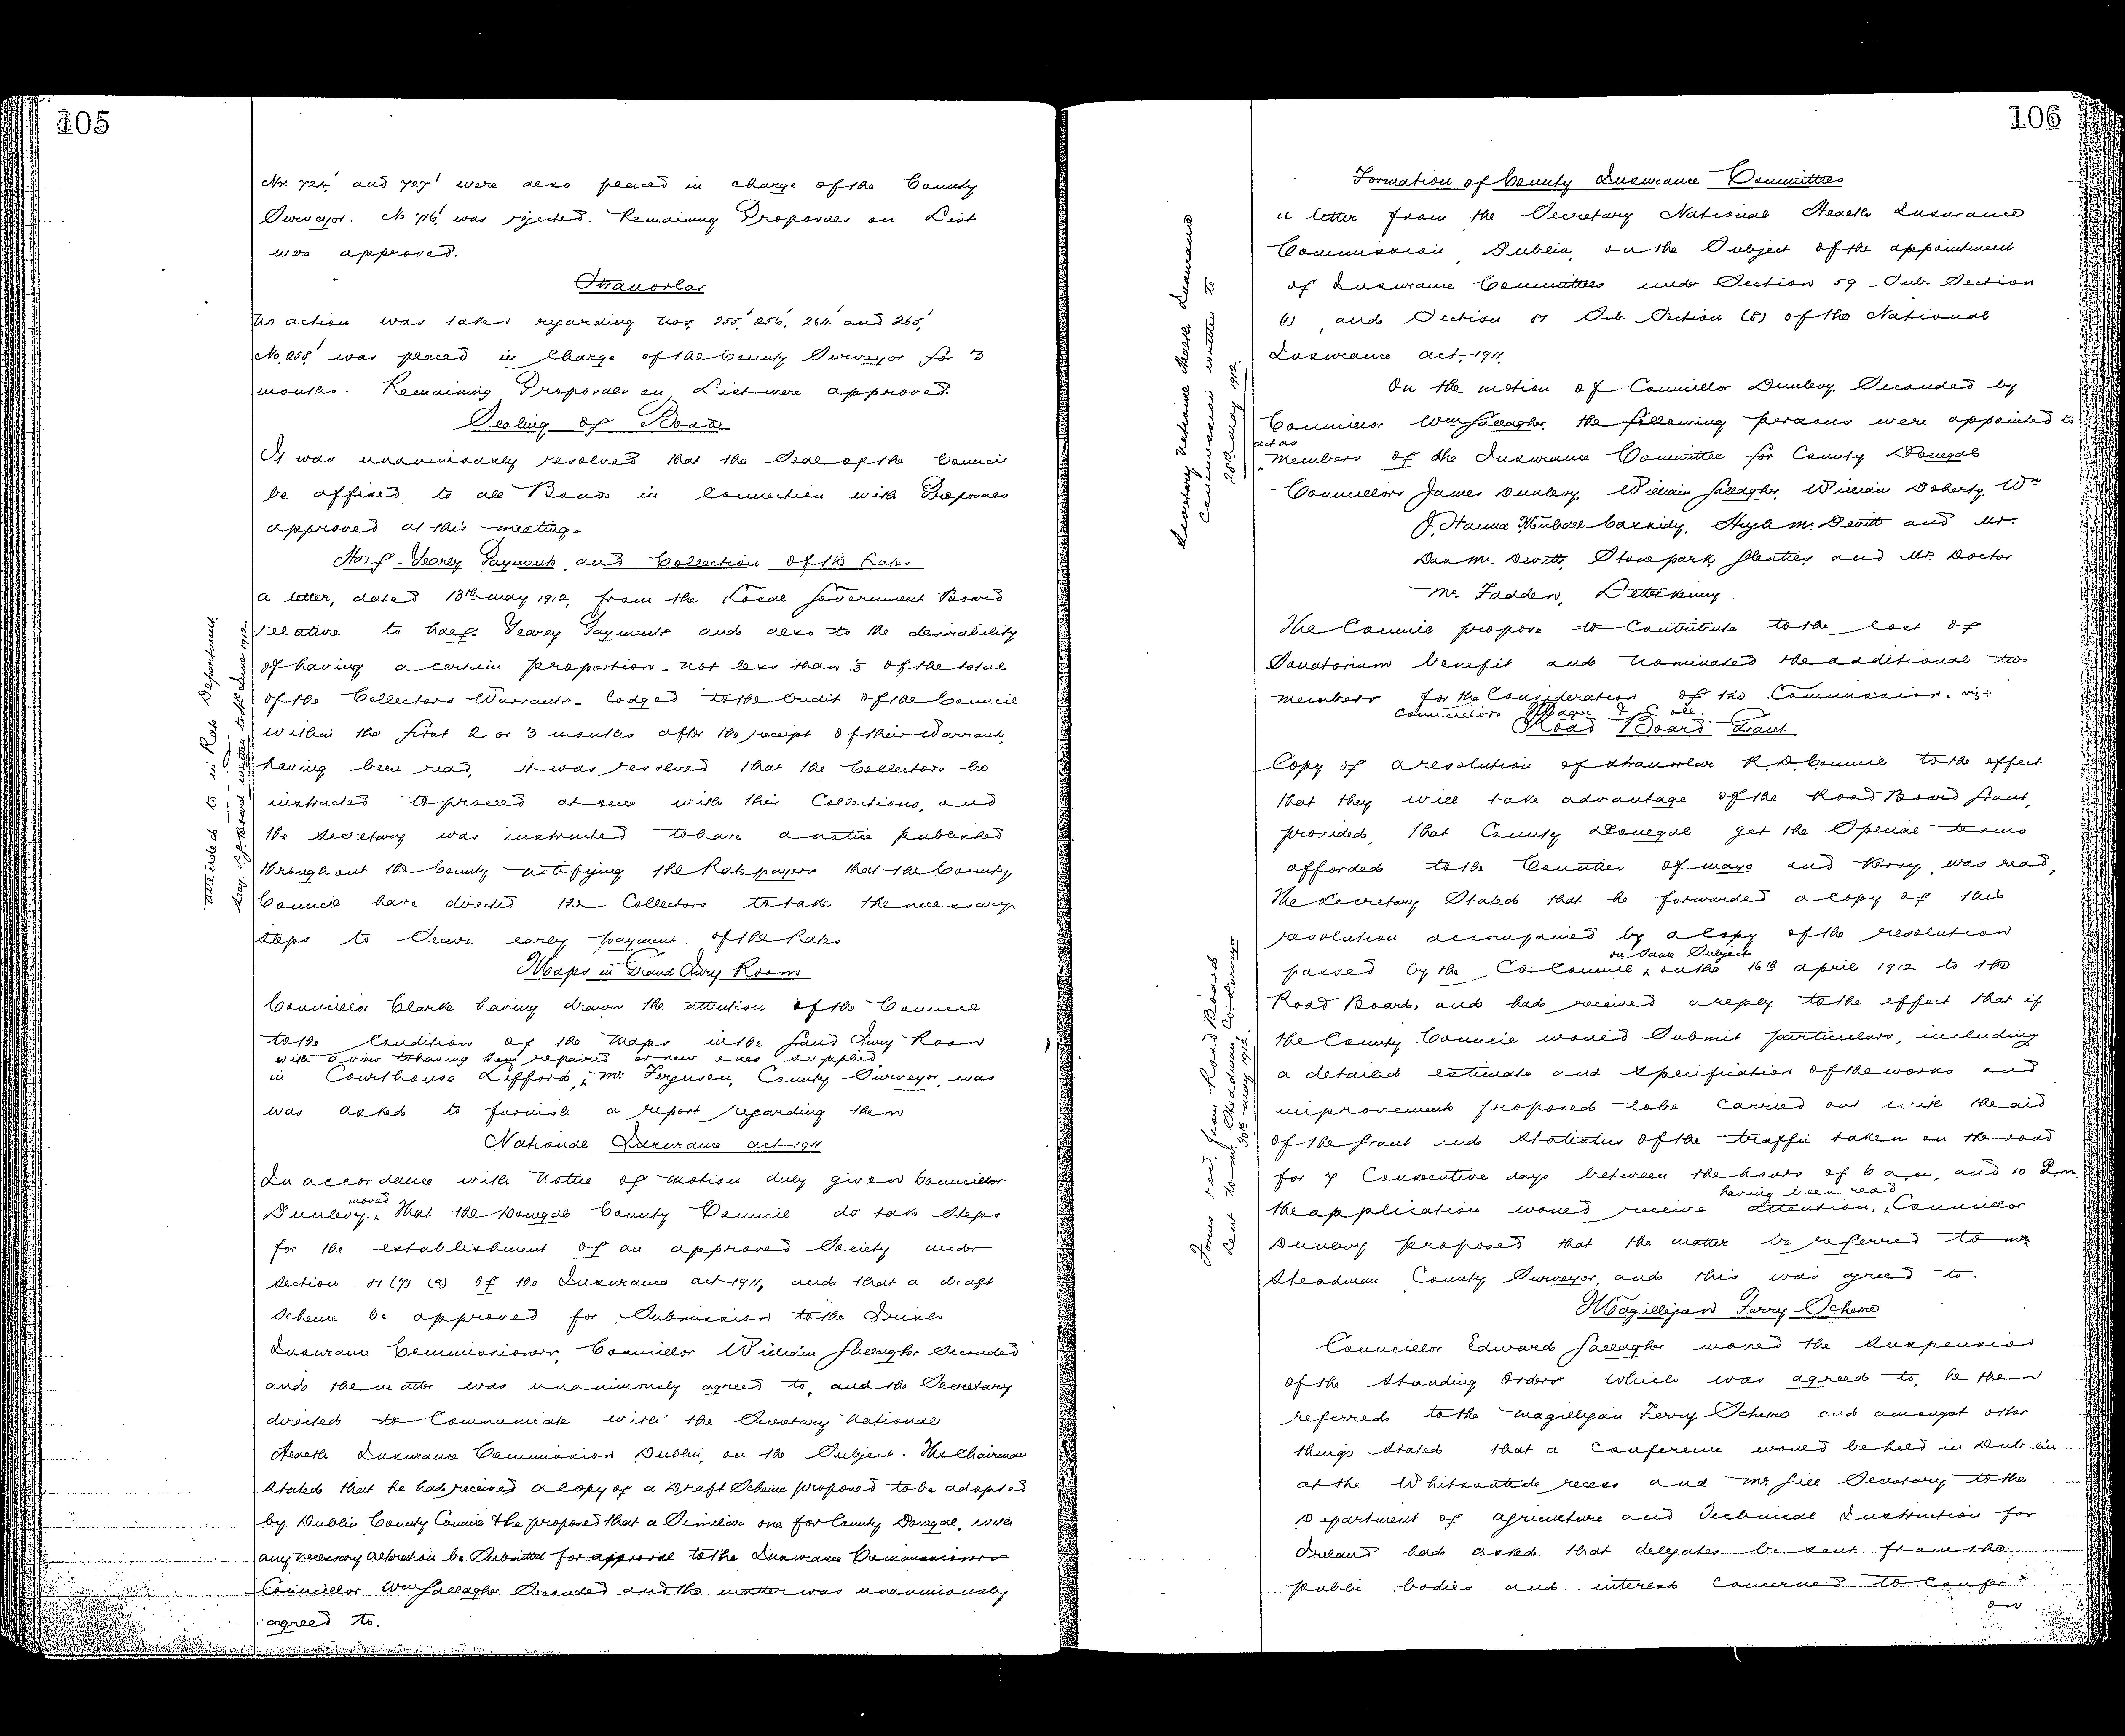 105
Nos. 724' and 727' were also placed in charge of the County
Surveyor. No 716' was rejected. Remaining Proposals on List
was approved.
Stranorlar
No action was taken regarding Nos. 255', 256', 264' and 265'.
No. 258' was placed in Charge of the County Surveyor for 3
months. Remaining Proposals on List were approved.
Sealing of Bonds
It was unanimously resolved that the Seal of the Council
be affixed to all Bonds in connection with Proposals
approved at this meeting-
Half-Yearly Payments and Collection of the Rates
A letter, dated 13th May 1912, from the Local Government Board
relative to half-Yearly Payments and also to the desirability
of having a certain proportion - not less than ⅓ of the total
of the Collectors Warrants - lodged to the Credit of the Council
within the first 2 or 3 months after the receipt of their Warrants,
having been read, it was resolved that the Collectors be
instructed to proceed at once with their Collections, and
the Secretary was instructed to have a notice published
throughout the County notifying the Ratepayers that the County
Council have directed the Collectors to take the necessary
steps to Secure early payment of the Rates
attended to in Rate Department
Maps in Grand Jury Room
Councillor Clark having drawn the attention of the Council
to the Condition of the Maps in the Grand Jury Room
with a view to having them repaired or new ones supplied
in Courthouse Lifford, Mr. Ferguson, County Surveyor, was
was asked to furnish a report regarding them
National Insurance Act 1911
In accordance with Notice of Motion duly given Councillor
moved
Dunlevy. That the Donegal County Council do take Steps
for the establishment of an approved Society under
Section 81 (7) (a) of the Insurance Act 1911, and that a draft
Scheme be approved for Submission to the Irish
Insurance Commissioners, Councillor William Gallagher Seconded
and the matter was unanimously agreed to, and the Secretary
directed to Communicate with the Secretary National
Health Insurance Commission Dublin, on the Subject. The Chairman
stated that he had received a copy of a Draft Scheme proposed to be adopted
by Dublin County Council & he proposed that a Similar one for County Donegal, with
any necessary alteration be Submitted for approval to the Insurance Commissioners
Councillor Wm Gallagher Seconded and the matter was unanimously
agreed to.
106
Formation of County Insurance Committees
A letter from the Secretary National Health Insurance
Commission, Dublin, on the Subject of the appointment
of Insurance Committees under Section 59 - Sub. Section
(1), and Section 81 Sub. Section (8) of the National
Insurance Act, 1911.
Secretary National Health Insurance
Commission written to
28th May 1912.
On the motion of Councillor Dunlevy. Seconded by
Councillor Wm Gallagher, the following persons were appointed to
act as
members of the Insurance Committee for County Donegal
- Councillors James Dunlevy, William Gallagher, William Doherty, Wm
J. Hanna Michael Cassidy, Hugh McDevitt and Mr.
Dan McDevitt, Stonepark, Glenties, and Mr. Doctor
McFadden, Letterkenny.
The Council propose to Contribute to the cost of
Sanatorium benefit and nominated the additional two
members for the Consideration of the Commission. viz:-
Councillors
Road Board Grant
Copy of a resolution of Stranorlar R.D. Council to the effect
that they will take advantage of the Road Board Grant,
provided, that County Donegal get the Special terms
afforded to the Counties of Mayo and Kerry, was read,
The Secretary Stated that he forwarded a copy of this
resolution accompanied by a copy of the resolution
on Same Subject
passed by the Co. Council, on the 16th April 1912 to the
Road Board, and had received a reply to the effect that if
the County Council would Submit particulars, including
a detailed estimate and Specification of the works and
improvements proposed to be carried out with the aid
of the Grant and Statistics of the traffic taken on the road
for 7 Consecutive days between the hours of 6 a.m. and 10 P.m.
having been read
the application would receive attention, Councillor
Dunlevy proposed that the matter be referred to Mr.
Steadman County Surveyor, and this was agreed to.
Forms recd. from Road Board
Sent to Mr. Steadman, Co. Surveyor
30th May 1912.
Magilligan Ferry Scheme
Councillor Edward Gallagher moved the Suspension
of the Standing Orders which was agreed to, he then
referred to the Magilligan Ferry Scheme and amongst other
things Stated that a Conference would be held in Dublin
at the Whitsuntide recess and Mr. Gill Secretary to the
Department of Agriculture and Technical Instruction for
Ireland had asked that delegates be sent from the
public bodies and interests concerned to confer
on